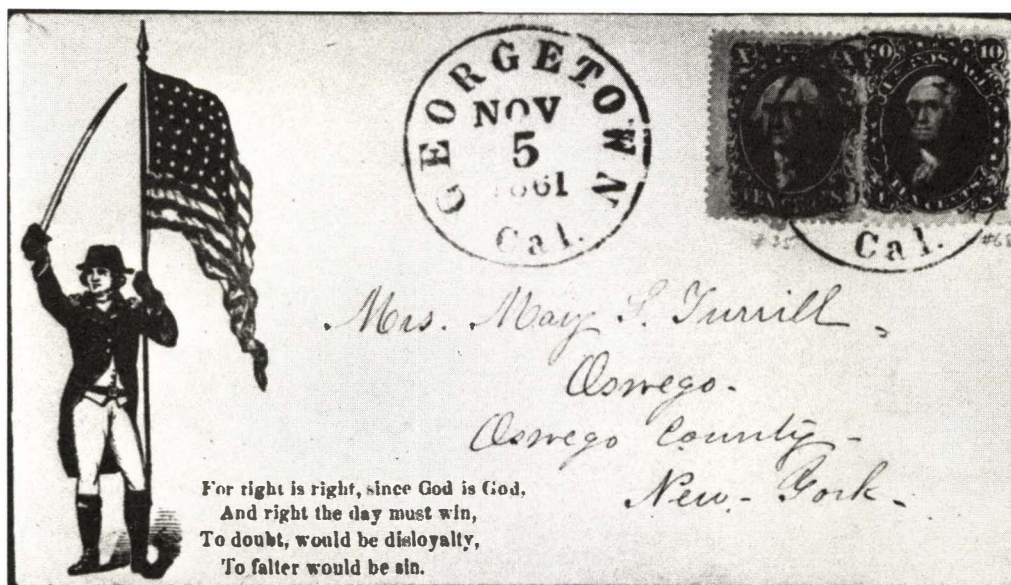 GEORGETOWN
NOV
5
1861
Cal.
10 10
#35
#68
Cal.
Mrs. May S. Turrill,
Oswego.
Oswego County -
New - York -
For right is right, since God is God,
And right the day must win,
To doubt, would be disloyalty,
To falter would be sin.